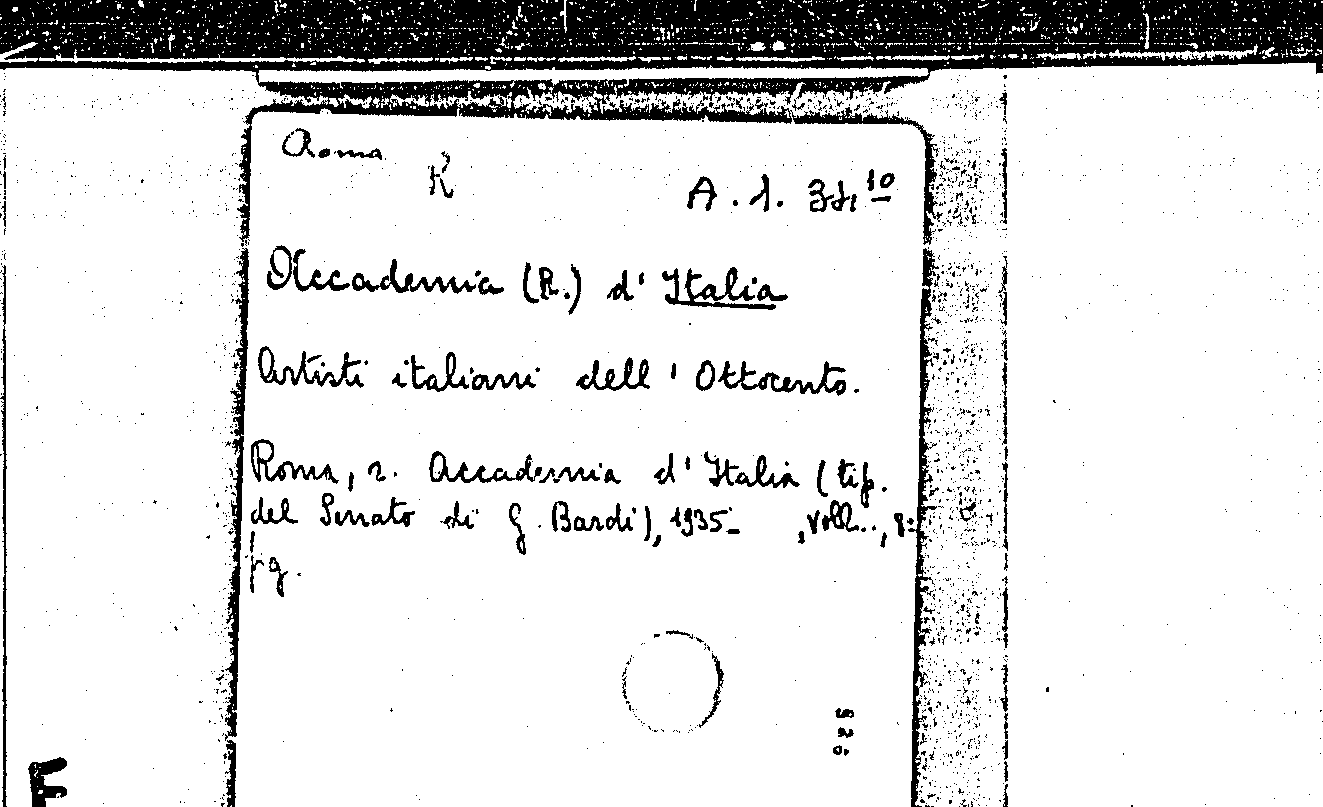 Roma
R
A. 1. 31.10
Accademia (R.) d'Italia
Artisti italiani dell'Ottocento.
Roma, r. Accademia d'Italia (tip.
del Senato di G. Bardi), 1935- , voll.., 8º
fg.